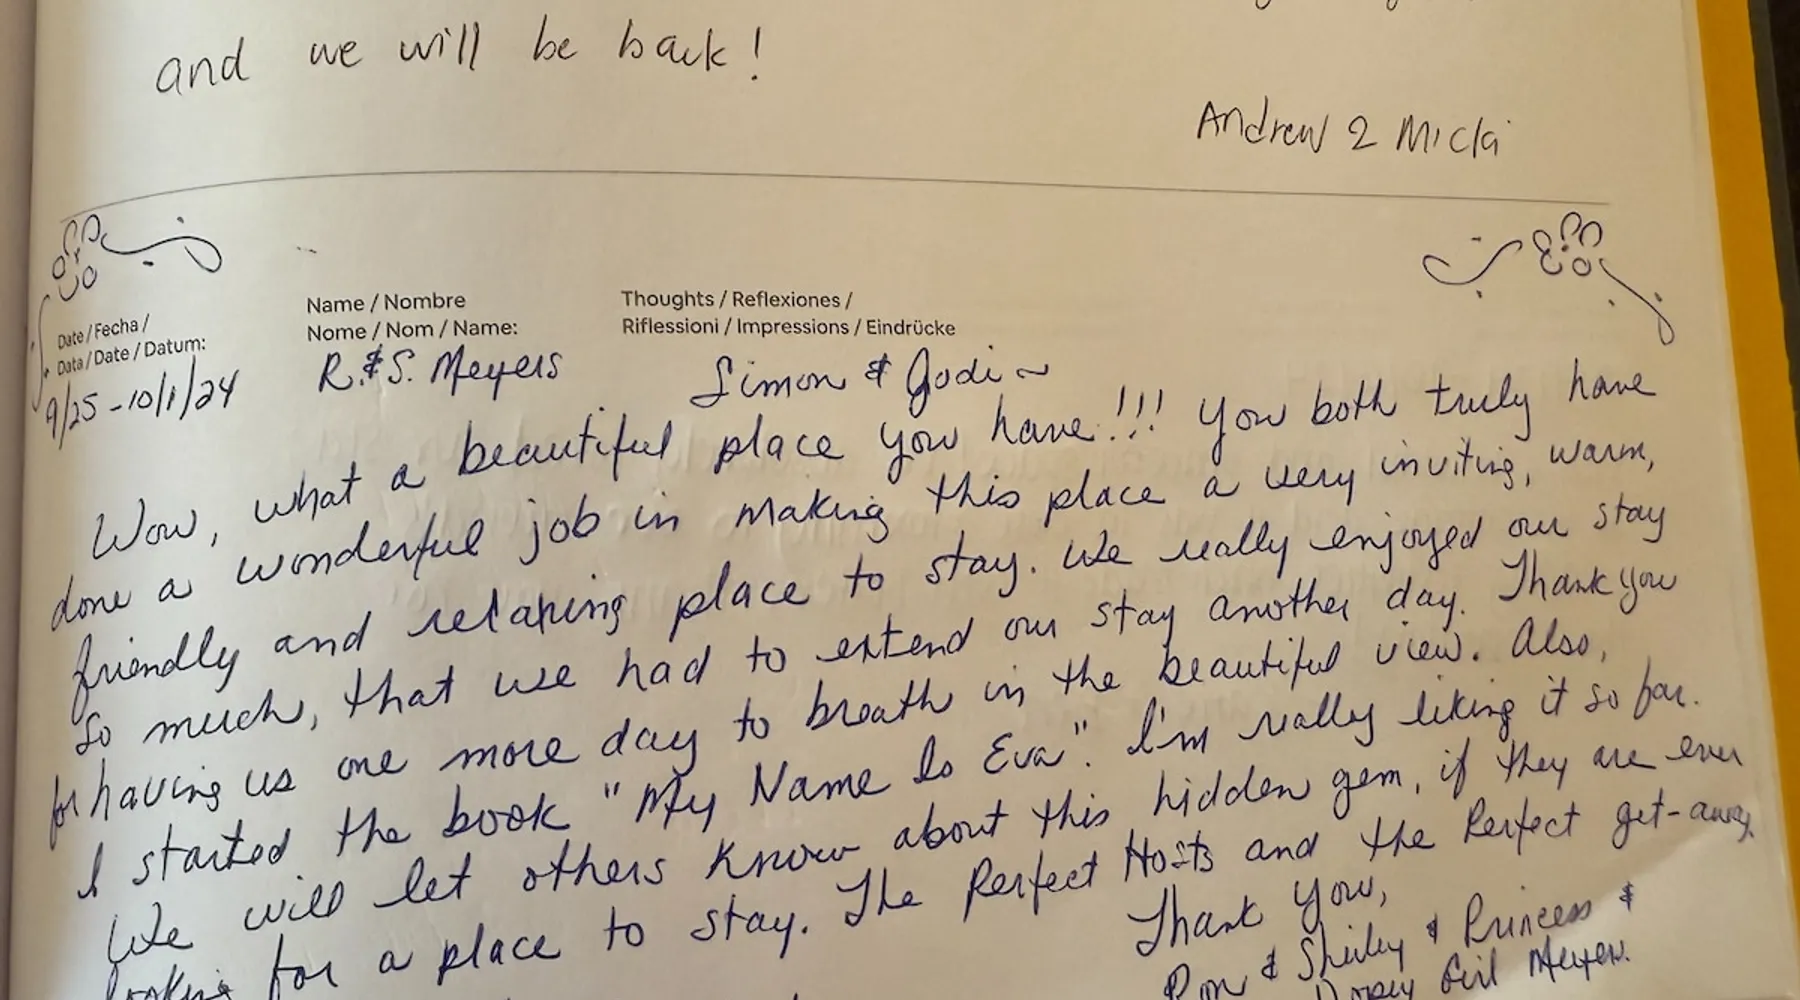 and we will be back!
Andrew 2 Micki
Date / Fecha /
Data / Date / Datum:
Name / Nombre
Nome / Nom / Name:
Thoughts / Reflexiones /
Riflessioni / Impressions / Eindrücke
9/25 - 10/1/24
R. & S. Meyers
Simon & Jodi ~
Wow, what a beautiful place you have!!! You both truly have
done a wonderful job in making this place a very inviting, warm,
friendly and relaxing place to stay. We really enjoyed our stay
so much, that we had to extend our stay another day. Thank you
for having us one more day to breath in the beautiful view. Also,
I started the book "My Name Is Eva". I'm really liking it so far.
We will let others know about this hidden gem, if they are ever
looking for a place to stay. The Perfect Hosts and the Perfect get-away.
Thank You,
Ron & Shirley & Princess &
Girl Meyers.